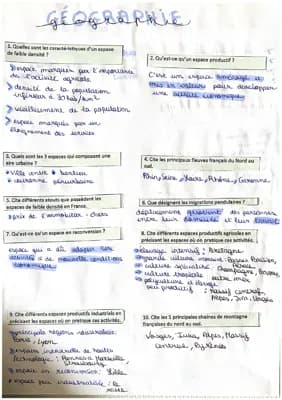 GÉOGRAPHIE
1. Quelles sont les caractéristiques d'un espace
de faible densité ?
espace marquer par l'importance
de l'activité agricole
densité de la population
inférieur à 30 hab/km²
vieillissement de la population
espace marqués par un
éloignement des services
2. Qu'est-ce qu'un espace productif ?
C'est un espace aménagé et
mis en valeurs pour développer
une activité économique.
3. Quels sont les 3 espaces qui composent une
aire urbaine ?
Ville centre • banlieue
couronne périurbaine
4. Cite les principaux fleuves français du Nord au
sud.
Rhin, Seine, Loire, Rhône, Garonne
5. Cite différents atouts que possèdent les
espaces de faible densité en France.
prix de l'immobilier - chers
6. Que désignent les migrations pendulaires ?
déplacement des personnes
entre leur domicile et leur travail
7. Qu'est-ce qu'un espace en reconversion ?
espace qui a dû adapter ses
activités à de nouvelle conditions
économique
8. Cite différents espaces productifs agricoles en
précisant les espaces où on pratique ces activités.
élevage intensif : Bretagne
grande culture : Bassin Parisien,
culture spécialisé :
Champagne, 
culture tropicale : outre mer
polyculture et élevage
peu productif : Massif central,
Alpes, Jura, Vosges
9. Cite différents espaces productifs industriels en
précisant les espaces où on pratique ces activités.
principale régions industrielles :
Paris, Lyon
espaces industrielle de hautes
technologie : Rennes, Marseille
Strasbourg
espace en reconversion : Lille
espace peu industrialisé : Le
10. Cite les 5 principales chaines de montagne
françaises du nord au sud.
Vosges, Jura, Alpes, Massif
centrale, Pyrénées